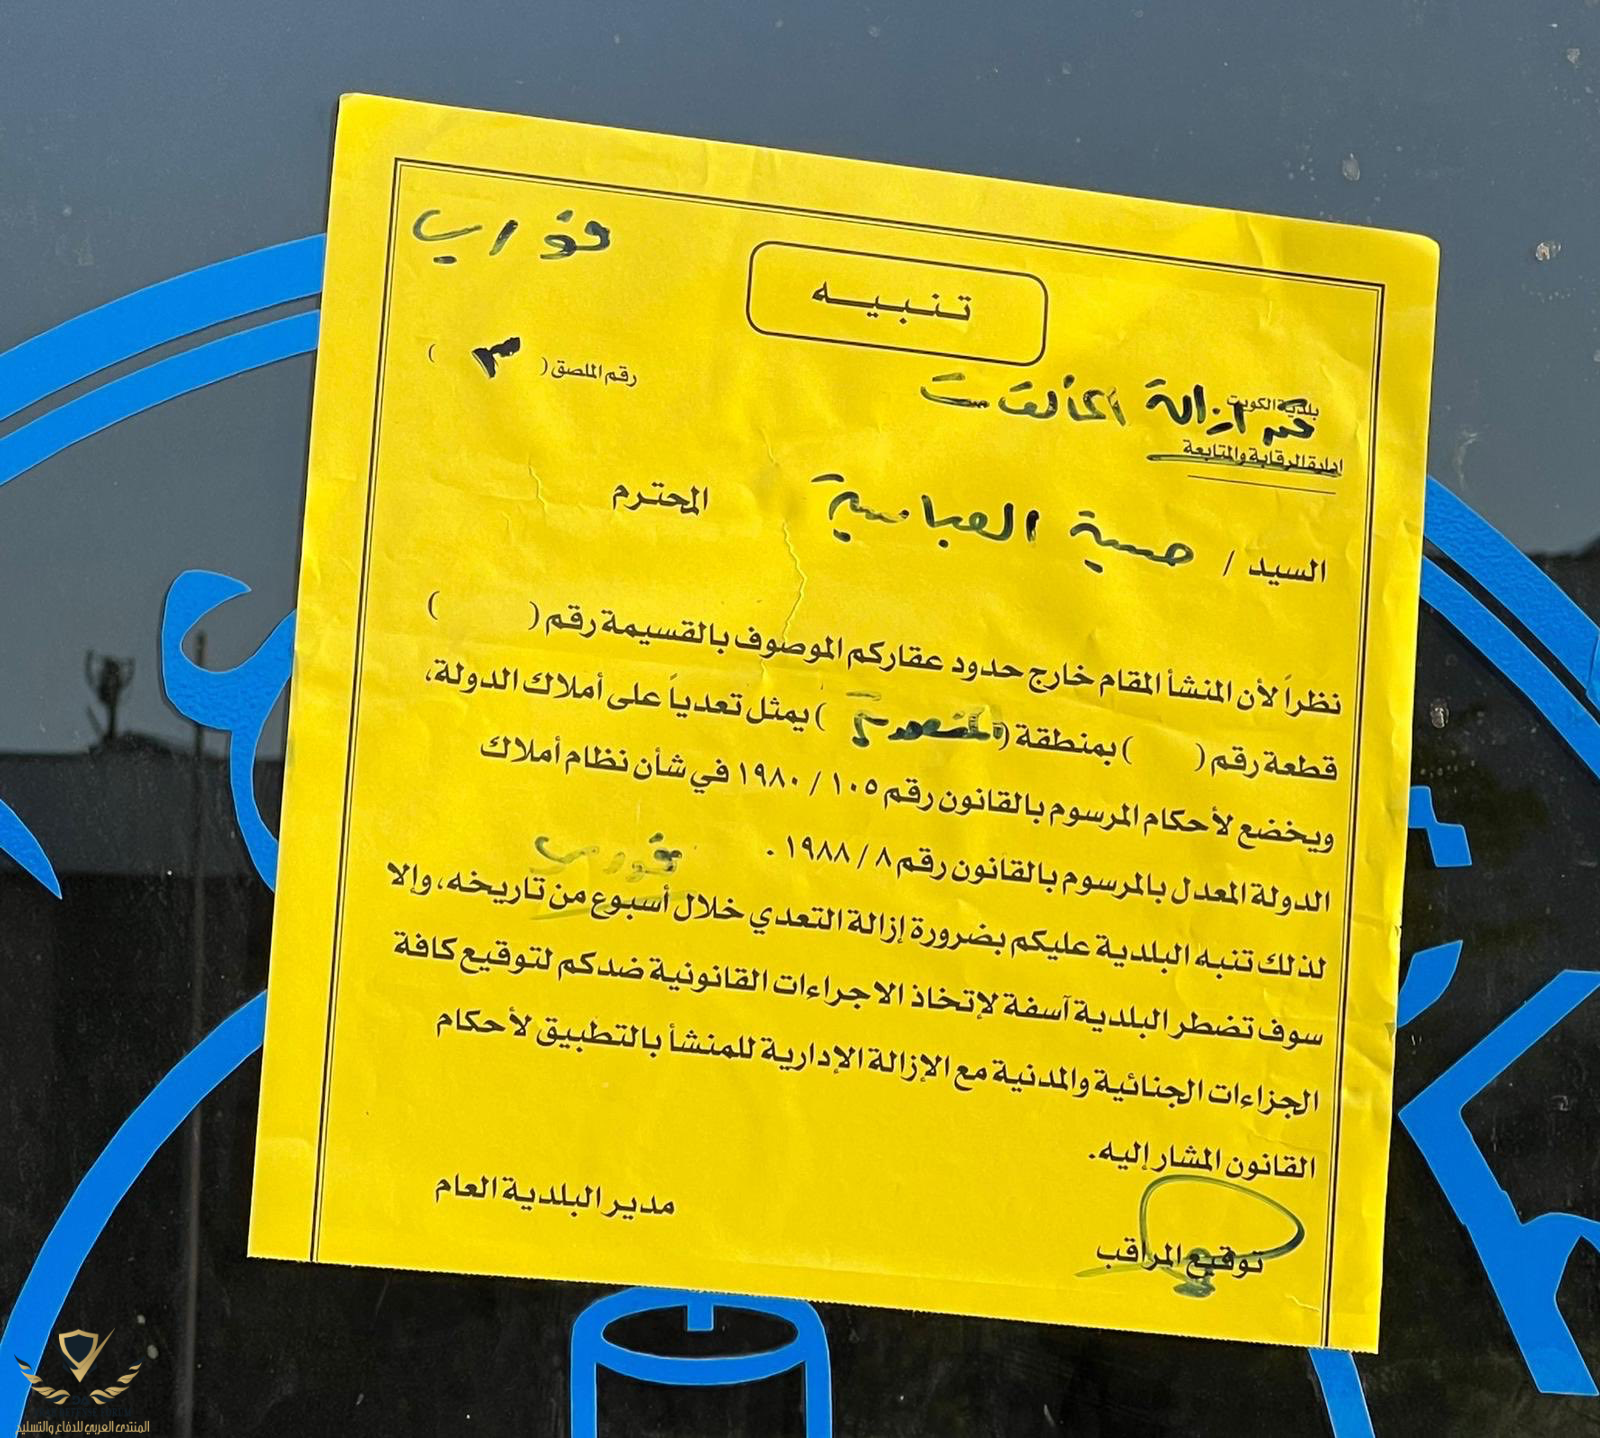 فوراً
تنبيه
رقم الملصق ( ٣ )
بلدية الكويت
قسم ازالة المخالفات
إدارة الرقابة والمتابعة
السيد / حسينية العباسية المحترم
نظراً لأن المنشأ المقام خارج حدود عقاركم الموصوف بالقسيمة رقم ( )
قطعة رقم ( ) بمنطقة ( المنصورية ) يمثل تعدياً على أملاك الدولة،
ويخضع لأحكام المرسوم بالقانون رقم ١٠٥ / ١٩٨٠ في شأن نظام أملاك
الدولة المعدل بالمرسوم بالقانون رقم ٨ / ١٩٨٨ .
فوراً
لذلك تنبه البلدية عليكم بضرورة إزالة التعدي خلال أسبوع من تاريخه، وإلا
سوف تضطر البلدية آسفة لإتخاذ الاجراءات القانونية ضدكم لتوقيع كافة
الجزاءات الجنائية والمدنية مع الإزالة الإدارية للمنشأ بالتطبيق لأحكام
القانون المشار إليه.
توقيع المراقب مدير البلدية العام
المنتدى العربي للدفاع والتسليح